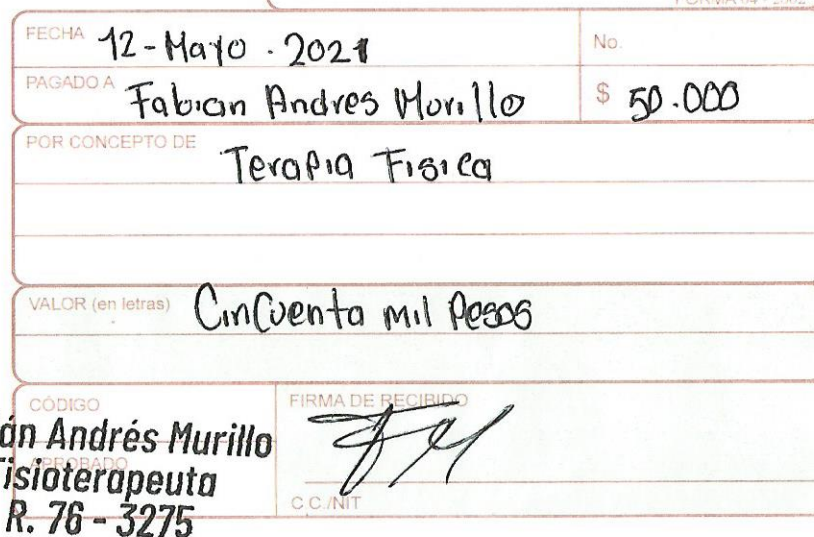 FECHA 12-Mayo.2021 No.
PAGADO A Fabian Andres Murillo $ 50.000
POR CONCEPTO DE Terapia Fisica
VALOR (en letras) Cincuenta mil Pesos
CÓDIGO FIRMA DE RECIBIDO
án Andrés Murillo
APROBADO
Fisioterapeuta
R. 76 - 3275
C.C./NIT